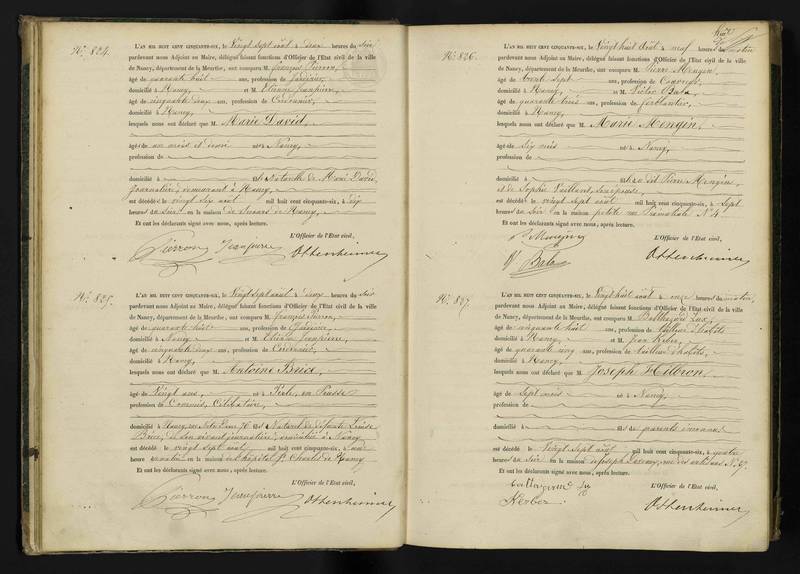 N° 824.
L'AN MIL HUIT CENT CINQUANTE-SIX, le Vingt sept août à deux heures du soir
pardevant nous Adjoint au Maire, délégué faisant fonctions d'Officier de l'Etat civil de la ville
de Nancy, département de la Meurthe, ont comparu M. François Pierron,
âgé de quarante huit ans, profession de Jardinier,
domicilié à Nancy, et M. Etienne Jeanpierre,
âgé de cinquante deux ans, profession de Cordonnier,
domicilié à Nancy,
lesquels nous ont déclaré que M. Marie David,
âgé de un mois et demi né à Nancy,
profession de
domicilié à est naturelle de Marie David
journalière, demeurant à Nancy,
est décédé le vingt six août mil huit cent cinquante-six, à dix
heures du soir en la maison de secours de Nancy,
Et ont les déclarants signé avec nous, après lecture.
L'Officier de l'Etat civil,
Pierron Jeanpierre Ottenheimer
N° 825.
L'AN MIL HUIT CENT CINQUANTE-SIX, le Vingt sept août à deux heures du soir
pardevant nous Adjoint au Maire, délégué faisant fonctions d'Officier de l'Etat civil de la ville
de Nancy, département de la Meurthe, ont comparu M. François Pierron,
âgé de quarante huit ans, profession de Jardinier,
domicilié à Nancy et M. Etienne Jeanpierre,
âgé de cinquante deux ans, profession de Cordonnier,
domicilié à Nancy,
lesquels nous ont déclaré que M. Antoine Brice
âgé de Vingt ans, né à en Prusse
profession de Commis, Célibataire,
domicilié à Nancy, 76 est Naturel de défunte Louise
Brice, de son vivant journalière, domiciliée à Nancy
est décédé le vingt sept août mil huit cent cinquante-six, à une
heure du matin en la maison de l'hôpital St Charles de Nancy
Et ont les déclarants signé avec nous, après lecture.
L'Officier de l'Etat civil,
Pierron Jeanpierre Ottenheimer
N° 826.
L'AN MIL HUIT CENT CINQUANTE-SIX, le Vingt huit août à neuf heures du matin
pardevant nous Adjoint au Maire, délégué faisant fonctions d'Officier de l'Etat civil de la ville
de Nancy, département de la Meurthe, ont comparu M. Pierre Mengin,
âgé de trente sept ans, profession de Couvreur,
domicilié à Nancy, et M. Victor Bala,
âgé de quarante trois ans, profession de ferblantier,
domicilié à Nancy,
lesquels nous ont déclaré que M. Marie Mengin,
âgé de Six mois né à Nancy,
profession de
domicilié à est du dit Pierre Mengin,
et de Sophie
est décédé le vingt sept août mil huit cent cinquante-six, à sept
heures du soir en la maison petite rue N° 4
Et ont les déclarants signé avec nous, après lecture.
L'Officier de l'Etat civil,
P. Mengin
V Bala Ottenheimer
N° 827.
L'AN MIL HUIT CENT CINQUANTE-SIX, le Vingt huit août à onze heures du matin,
pardevant nous Adjoint au Maire, délégué faisant fonctions d'Officier de l'Etat civil de la ville
de Nancy, département de la Meurthe, ont comparu M. Balthazard Lux,
âgé de cinquante huit ans, profession de tailleur d'habits
domicilié à Nancy, et M. Jean
âgé de quarante cinq ans, profession de tailleur d'habits,
domicilié à Nancy,
lesquels nous ont déclaré que M. Joseph Hilbron,
âgé de Sept mois né à Nancy,
profession de
domicilié à est de parents inconnus
est décédé le Vingt sept août mil huit cent cinquante-six, à quatre
heures du soir en la maison de Joseph rue des artisans N° 67.
Et ont les déclarants signé avec nous, après lecture.
L'Officier de l'Etat civil,
Ottenheimer